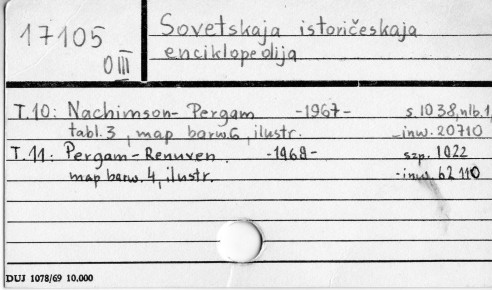 17105
O III
Sovetskaja istoričeskaja
enciklopedija
T.10: Nachimson-Pergam -1967- s.1038, nlb.1,
tabl.3, map barw.6, ilustr. -inw. 20710
T.11: Pergam-Renuven. -1968- szp. 1022
map barw. 4, ilustr. -inw. 62110
DUJ 1078/69 10.000